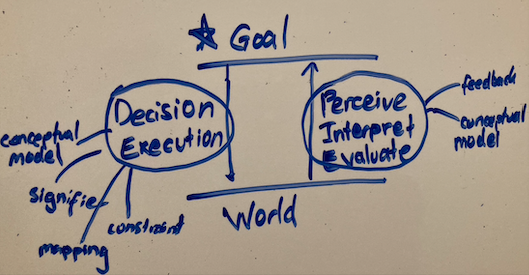 Goal
Decision
Execution
conceptual
model
signifie
mapping
constraint
Perceive
Interpret
Evaluate
feedback
conceptual
model
World